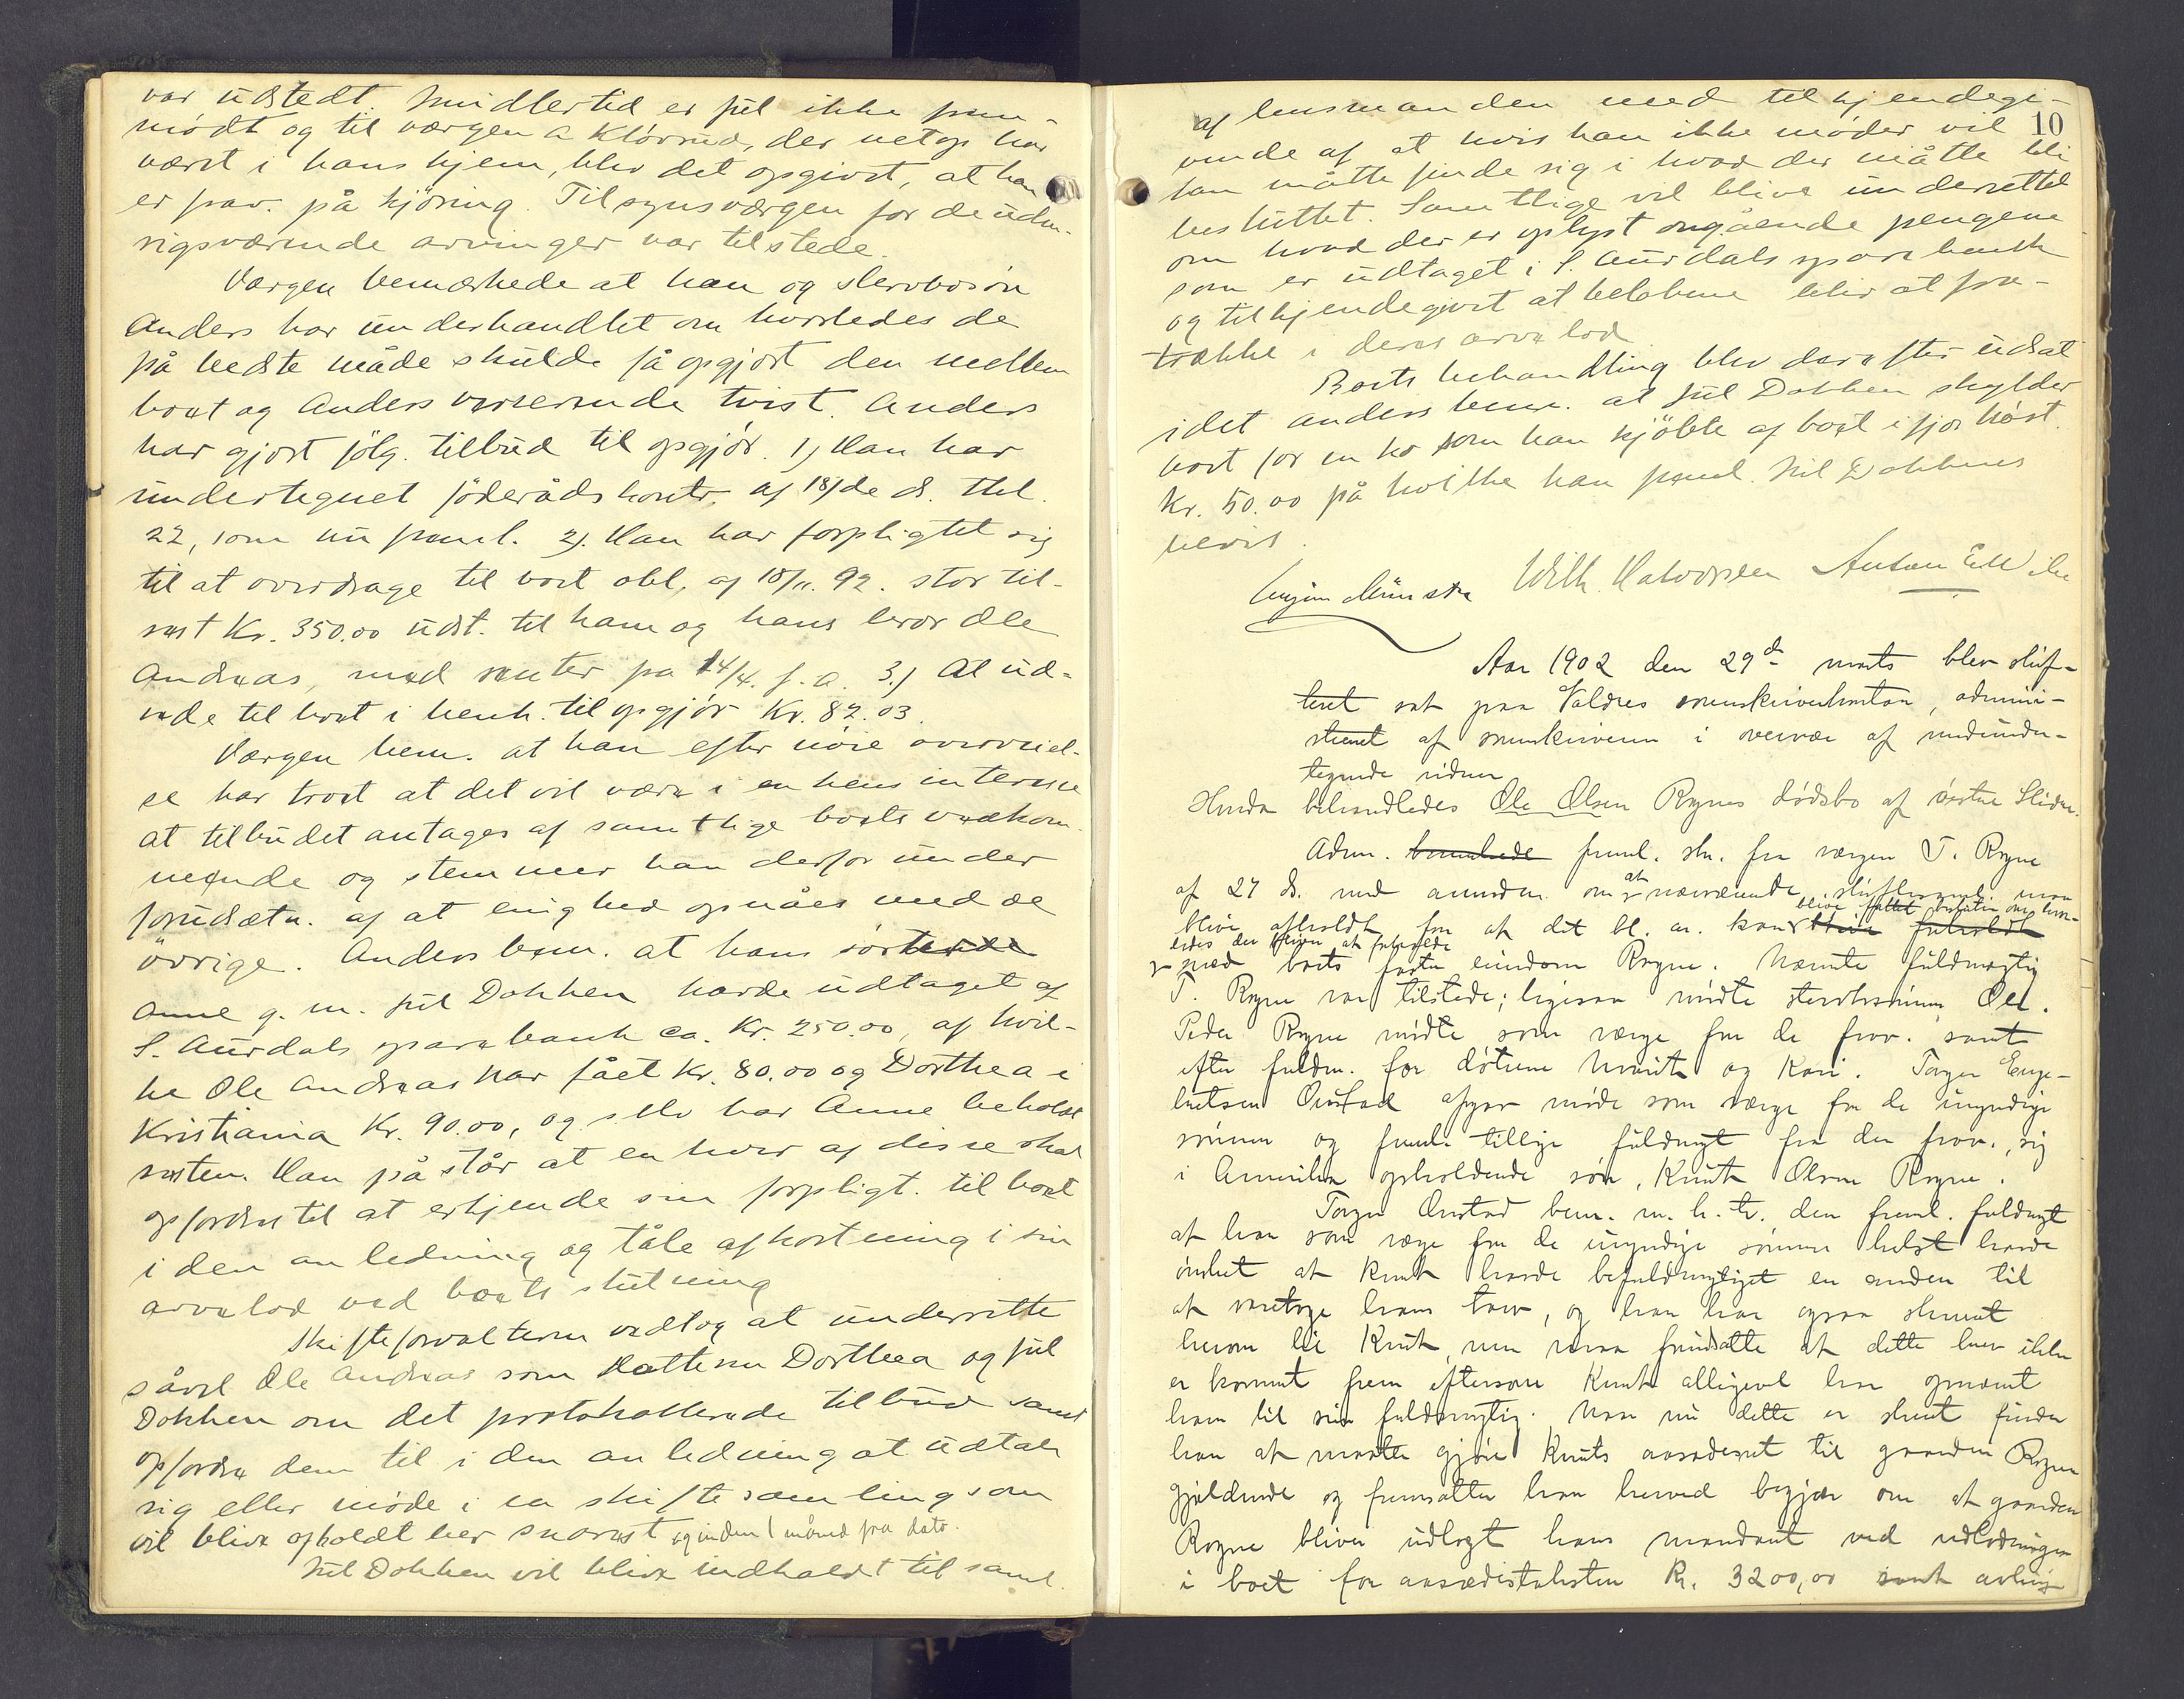 var udstedt. Imidlertid er Jul ikke frem-
mødt og til værgen A Kløvrud, der netop har
været i hans hjem, blev det opgivet, at han
er frav. på kjøring. Tilsynsværgen for de uden-
rigsværende arvinger var tilstede.
Værgen bemærkede at han og stervbosøn
Anders har underhandlet om hvorledes de
på bedste måde skulde få opgjort den mellem
boet og Anders værserende tvist. Anders
har gjort følg. tilbud til opgjør. 1) Han har
undertegnet føderådskontr. af 18/de ds. tkl.
22, som nu freml. 2). Han har forpligtet sig
til at overdrage til boet obl. af 18/11. 92. stor til-
rest Kr. 350.00 udst. til ham og hans bror Ole
Andreas, med renter fra 14/4. f. a. 3.) At ud-
rede til boet i henh. til opgjør Kr. 82.03.
Værgen bem. at han efter nøie overveiel-
se har troet at det vil være i enhens interesse
at tilbudet antages af samtlige boets vedkom-
mende og stemmer han derfor under
forudsætn. af at enighed opnåes med de
øvrige. Anders bem. at hans søster
Anne g. m. Jul Dokken havde udtaget af
S. Aurdals sparebank ca. Kr. 250.00, af hvil-
ke Ole Andreas har fået Kr. 80.00 og Dorthea i
Kristiania Kr. 90.00, og selv har Anne beholdt
resten. Han påstår at en hver af disse skal
opfordres til at erkjende sin forpligt. til boet
i den anledning og tåle afkortning i sin
arvelod ved boets slutning
Skifteforvalteren vedtog at underrette
såvel Ole Andreas som Datteren Dorthea og Jul
Dokken om det protokollerede tilbud samt
opfordre dem til i den anledning at udtale
sig eller møde i en skiftesamling som
vil blive afholdt her snarest og inden 1 måned fra dato.
Jul Dokken vil blive indkaldt til saml.
10
af lensmanden med tilkjendegi-
vende af at hvis han ikke møder vil
han måtte finde sig i hvad der måtte bli
besluttet. Samtlige vil blive underrettet
om hvad der er oplyst angående pengene
som er udtaget i S. Aurdals sparebank
og tilkjendegivet at beløbene blir at fra-
trække i deres arvelod
Boets behandling blev derefter udsat
idet Anders bem. at Jul Dokken skylder
boet for en ko som han kjøbte af boet i fjor høst.
Kr. 50.00 på hvilke han freml. Jul Dokkens
bevis.
Wilh. Halvorsen Anton E.
Aar 1902 den 29de marts blev skif-
teret sat paa Valdres sorenskriverkontor, admini-
streret af sorenskriveren i overvær af medunder-
tegnede vidner
Herda behandledes Ole Olsen Rognes dødsbo af vestre Slidre.
Adm. bemærkede freml. skr. fra værgen T. Rogne
af 27 ds. med anmodn. om at nærværende skiftesaml. maa
blive afholdt for at det bl. a. kan blive fattet beslutn. om hvor-
ledes der bliver at forholde
med boets faste eiendom Rogne. Nævnte fuldmægtig
T. Rogne var tilstede; ligesaa mødte stervbosønnen Ole.
Peder Rogne mødte som værge for de frav. samt
efter fuldm. for døtrene og Kari. Torger Enge-
bretsen Onstad afgav møde som værge for de umyndige
sønner og freml. tillige fuldmagt fra den frav., sig
i Amerika opholdende søn, Knut Olsen Rogne.
Torger Onstad bem. m. h. t. den freml. fuldmagt
at han som værge for de umyndige sønner helst havde
ønsket at Knut havde befuldmægtiget en anden til
at varetage hans tarv, og han har ogsaa skrevet
herom til Knut, men maa forudsætte at dette brev ikke
er kommet frem eftersom Knut alligevel har opnævnt
ham til sin fuldmægtig. Naar nu dette er skeet finder
han at maatte gjøre Knuts aasædesret til gaarden Rogne
gjældende og fremsætter han herved begjær om at gaarden
Rogne bliver udlagt hans mandant ved udlodningen
i boet for aasædestaksten Kr. 3200,00 samt avling